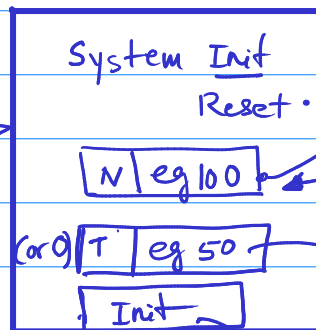 System Init
Reset.
N eg 100
(or 0) T eg 50
Init